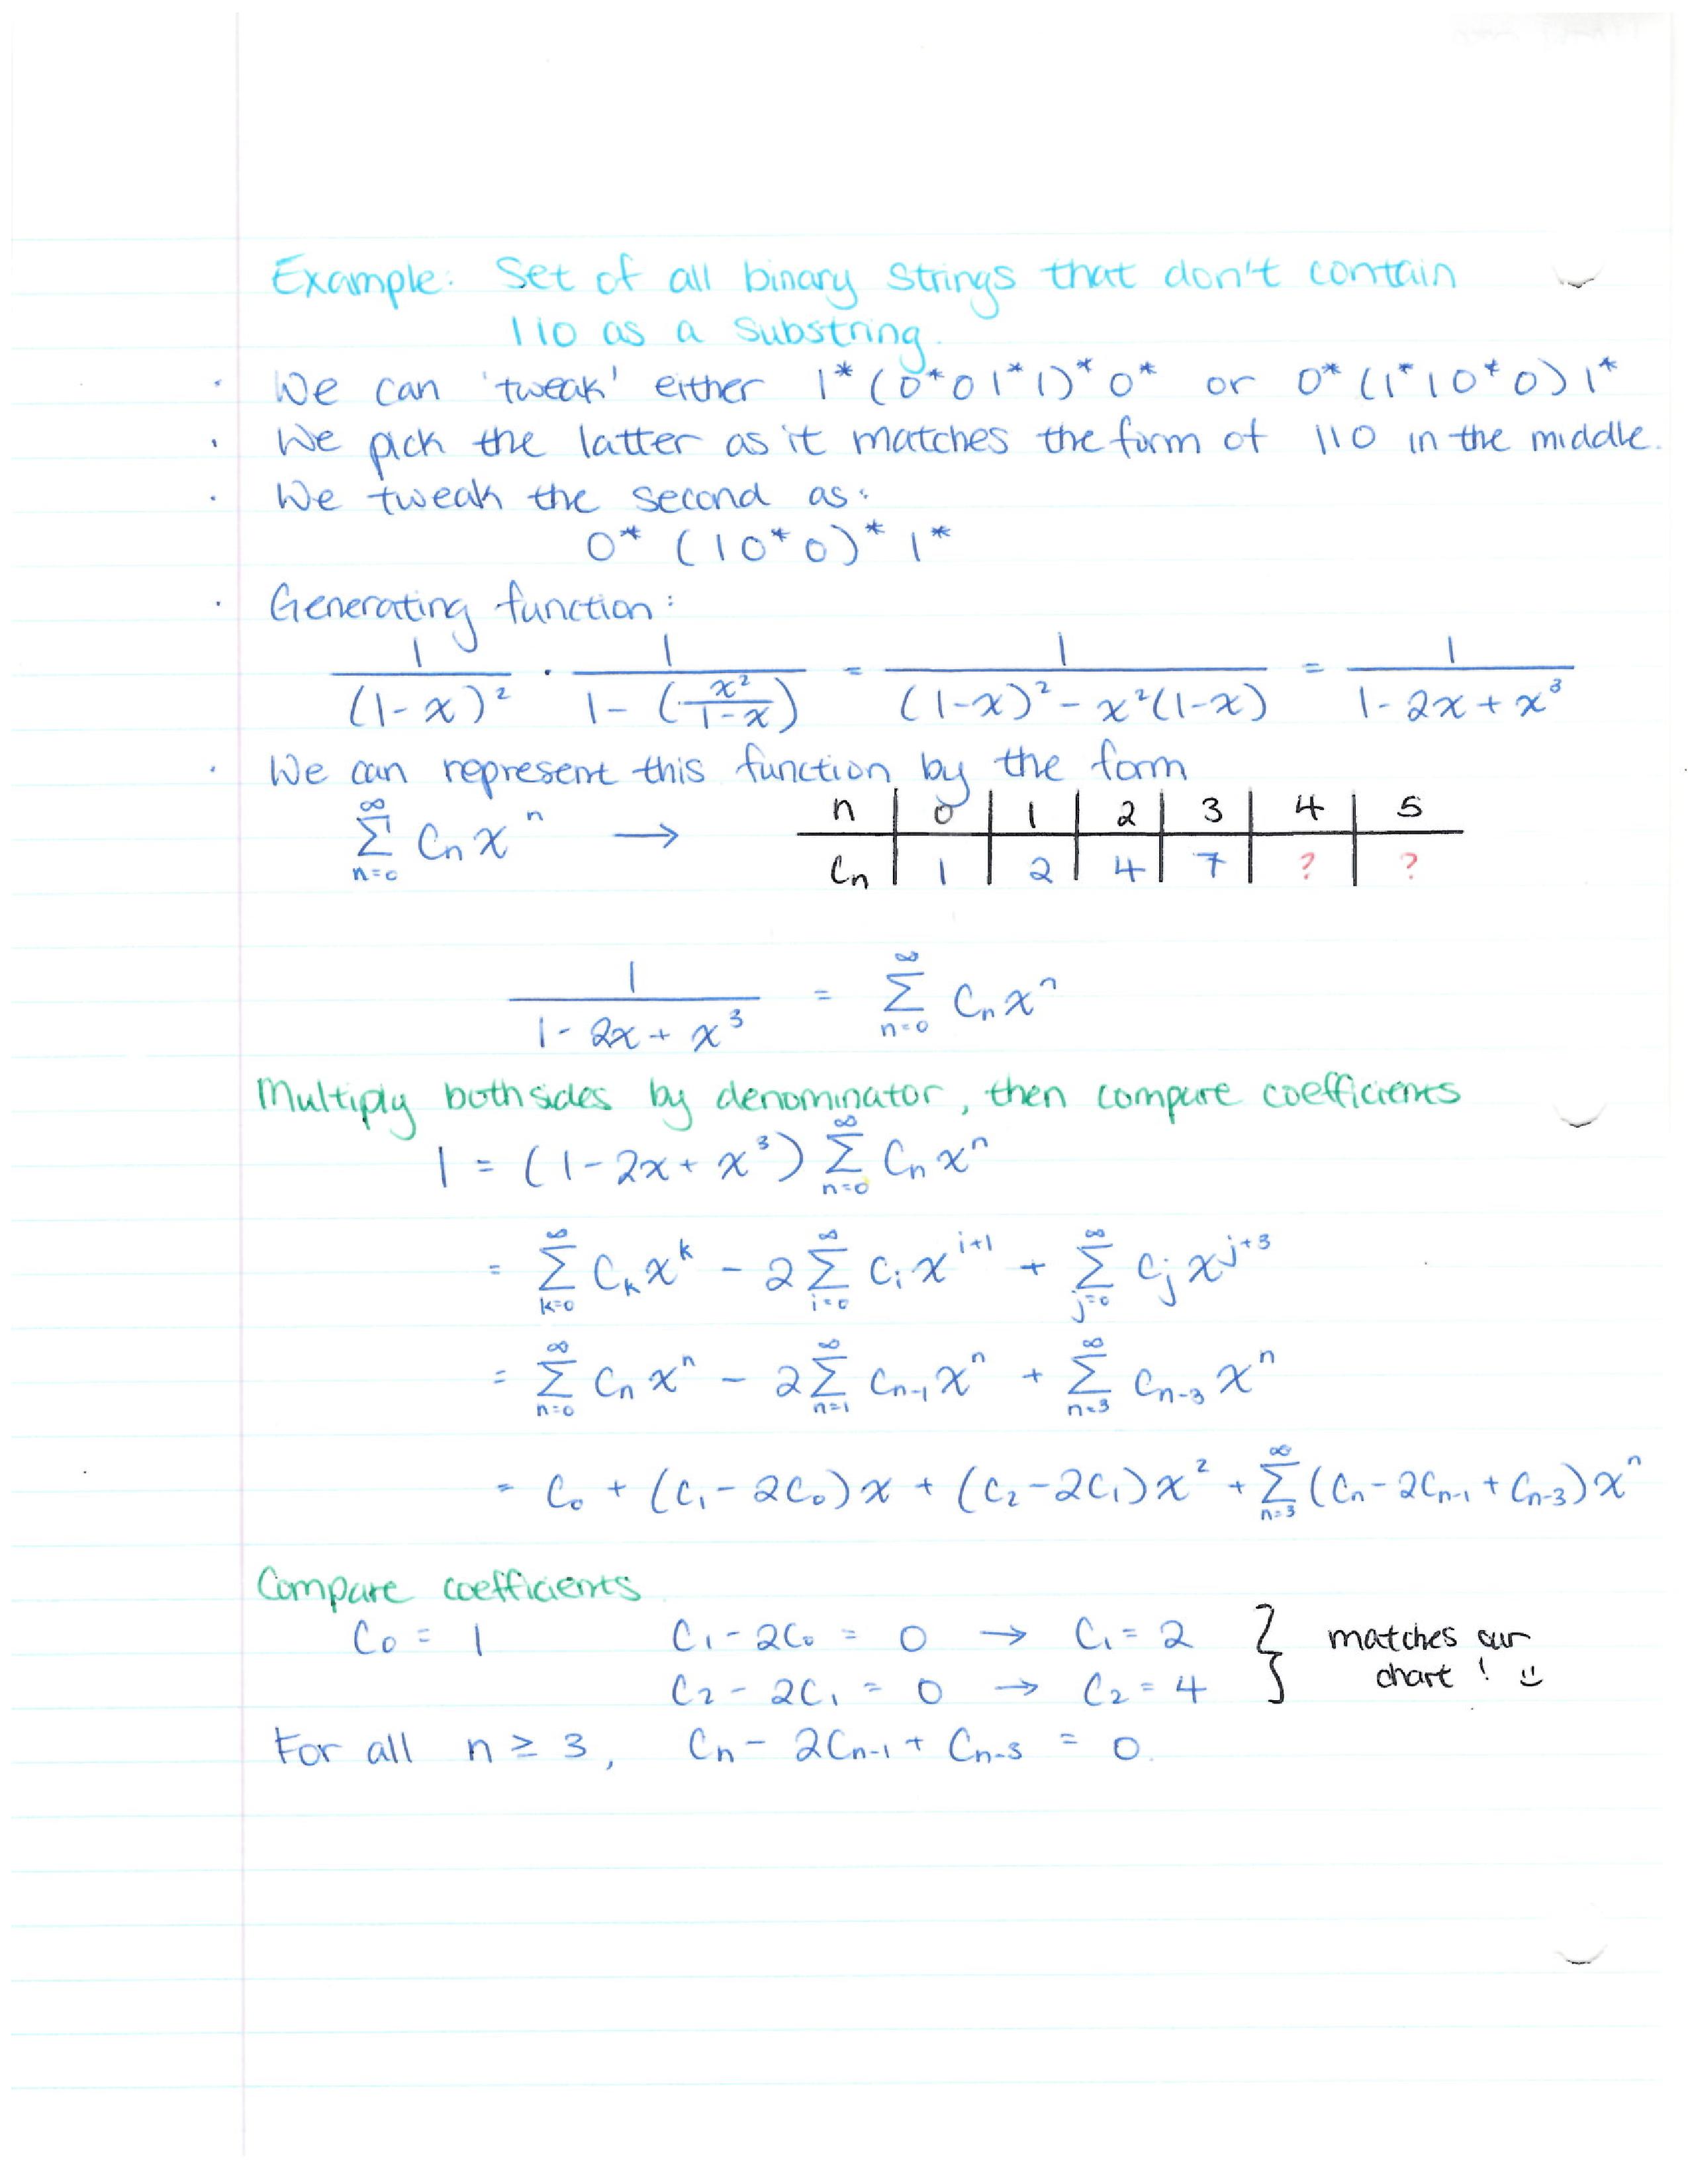 Example: Set of all binary strings that don't contain
110 as a substring.
· We can 'tweak' either 1* (0*01*1)* 0* or 0* (1*10*0) 1*
· We pick the latter as it matches the form of 110 in the middle.
· We tweak the second as:
0* (10*0)* 1*
· Generating function:
1/(1-x)² · 1/(1-(x²/(1-x))) = 1/((1-x)² - x²(1-x)) = 1/(1-2x+x³)
· We can represent this function by the form
∑_{n=0}^{∞} Cₙxⁿ →
n | 0 | 1 | 2 | 3 | 4 | 5
Cₙ | 1 | 2 | 4 | 7 | ? | ?
1/(1-2x+x³) = ∑_{n=0}^{∞} Cₙxⁿ
Multiply both sides by denominator, then compare coefficients
1 = (1-2x+x³) ∑_{n=0}^{∞} Cₙxⁿ
= ∑_{k=0}^{∞} C_k x^k - 2∑_{i=0}^{∞} C_i x^{i+1} + ∑_{j=0}^{∞} C_j x^{j+3}
= ∑_{n=0}^{∞} C_n x^n - 2∑_{n=1}^{∞} C_{n-1} x^n + ∑_{n=3}^{∞} C_{n-3} x^n
= C₀ + (C₁-2C₀)x + (C₂-2C₁)x² + ∑_{n=3}^{∞} (C_n - 2C_{n-1} + C_{n-3})x^n
Compare coefficients
C₀ = 1 C₁-2C₀ = 0 → C₁ = 2 } matches our
C₂-2C₁ = 0 → C₂ = 4 chart! :)
For all n ≥ 3, C_n - 2C_{n-1} + C_{n-3} = 0.